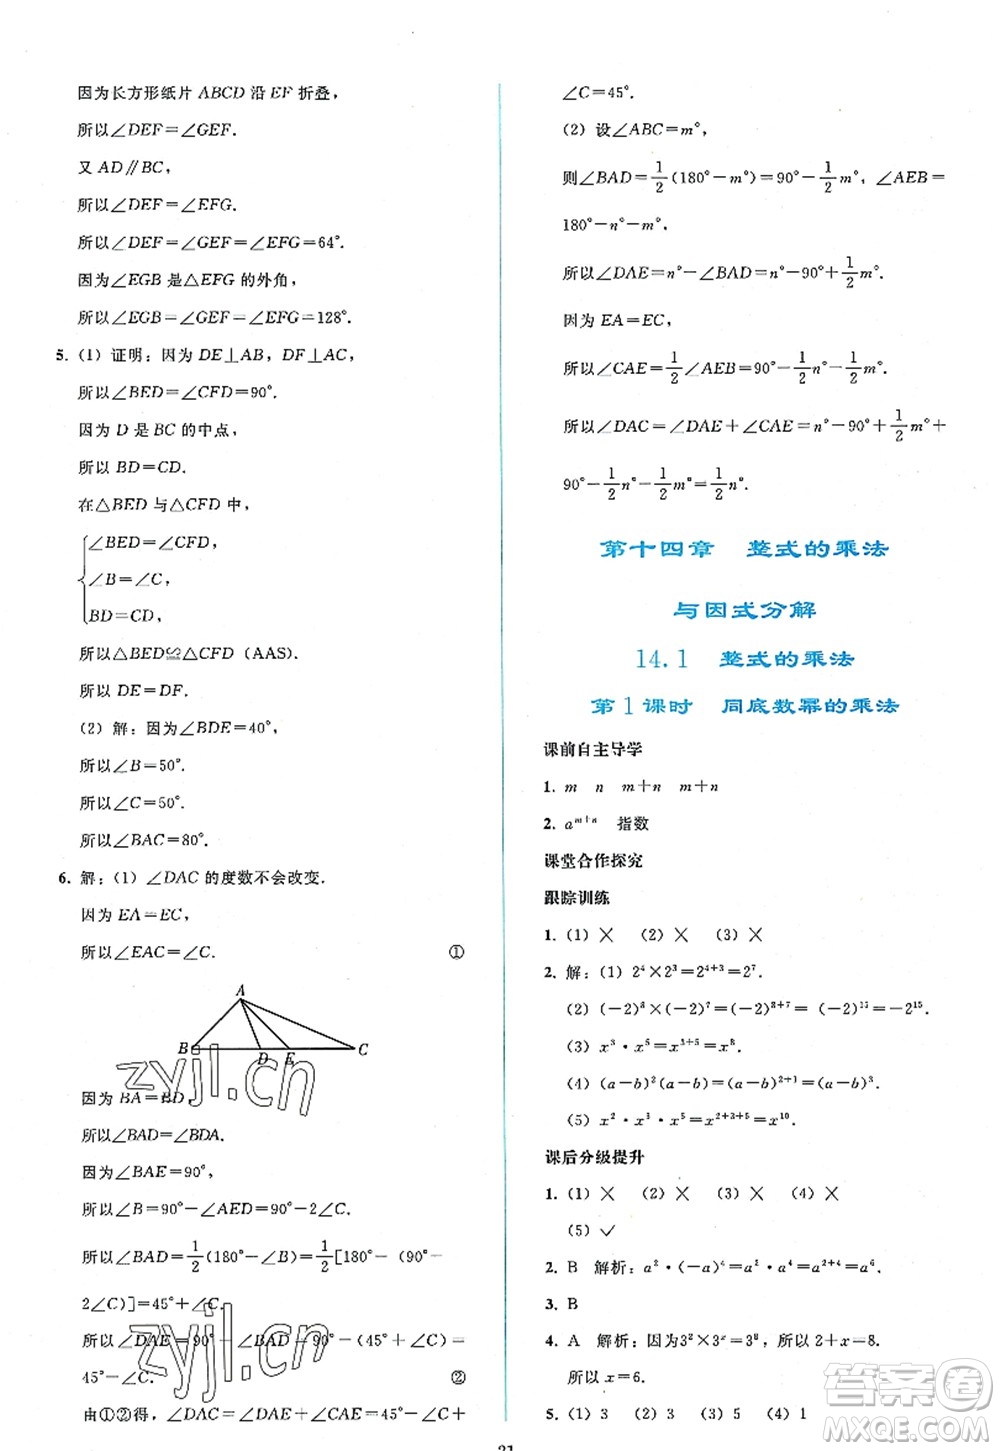 因为长方形纸片 ABCD 沿 EF 折叠,
所以∠DEF=∠GEF.
又 AD∥BC,
所以∠DEF=∠EFG.
所以∠DEF=∠GEF=∠EFG=64°.
因为∠EGB 是△EFG 的外角,
所以∠EGB=∠GEF=∠EFG=128°.
5. (1) 证明:因为 DE⊥AB, DF⊥AC,
所以∠BED=∠CFD=90°.
因为 D 是 BC 的中点,
所以 BD=CD.
在△BED 与△CFD 中,
∠BED=∠CFD,
∠B=∠C,
BD=CD,
所以△BED≌△CFD (AAS).
所以 DE=DF.
(2) 解:因为∠BDE=40°,
所以∠B=50°.
所以∠C=50°.
所以∠BAC=80°.
6. 解:(1) ∠DAC 的度数不会改变.
因为 EA=EC,
所以∠EAC=∠C. ①
A
B D E C
因为 BA=BD,
所以∠BAD=∠BDA.
因为∠BAE=90°,
所以∠B=90°-∠AED=90°-2∠C.
所以∠BAD=1/2(180°-∠B)=1/2[180°-(90°-
2∠C)]=45°+∠C.
所以∠DAE=90°-∠BAD=90°-(45°+∠C)=
45°-∠C. ②
由①②得,∠DAC=∠DAE+∠CAE=45°-∠C+
∠C=45°.
(2) 设∠ABC=m°,
则∠BAD=1/2(180°-m°)=90°-1/2m°, ∠AEB=
180°-n°-m°.
所以∠DAE=n°-∠BAD=n°-90°+1/2m°.
因为 EA=EC,
所以∠CAE=1/2∠AEB=90°-1/2n°-1/2m°.
所以∠DAC=∠DAE+∠CAE=n°-90°+1/2m°+
90°-1/2n°-1/2m°=1/2n°.
第十四章 整式的乘法
与因式分解
14.1 整式的乘法
第1课时 同底数幂的乘法
课前自主导学
1. m n m+n m+n
2. a^{m+n} 指数
课堂合作探究
跟踪训练
1. (1) × (2) × (3) ×
2. 解:(1) 2⁴×2³=2^{4+3}=2⁷.
(2) (-2)⁸×(-2)⁷=(-2)^{8+7}=(-2)¹⁵=-2¹⁵.
(3) x³·x⁵=x^{3+5}=x⁸.
(4) (a-b)²(a-b)=(a-b)^{2+1}=(a-b)³.
(5) x²·x³·x⁵=x^{2+3+5}=x¹⁰.
课后分级提升
1. (1) × (2) × (3) × (4) ×
(5) √
2. B 解析:a²·(-a)⁴=a²·a⁴=a^{2+4}=a⁶.
3. B
4. A 解析:因为3²×3ˣ=3⁸, 所以 2+x=8.
所以 x=6.
5. (1) 3 (2) 3 (3) 7 (4) 1
21
zyjl.cn
zyjl.cn
答案圈